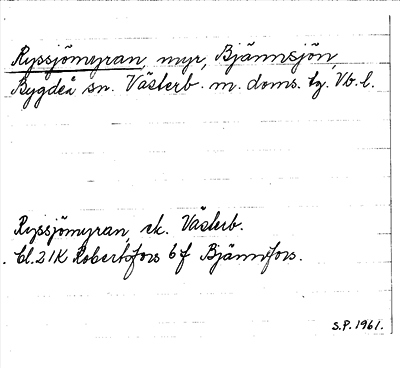 Ryssjömyran, myr, Bjännsjön,
Bygdeå sn. Västerb. m. doms. tg. Vb. l.
Ryssjömyran, ek. Västerb.
bl. 21K Robertsfors 6f Bjännfors.
S.P. 1961.